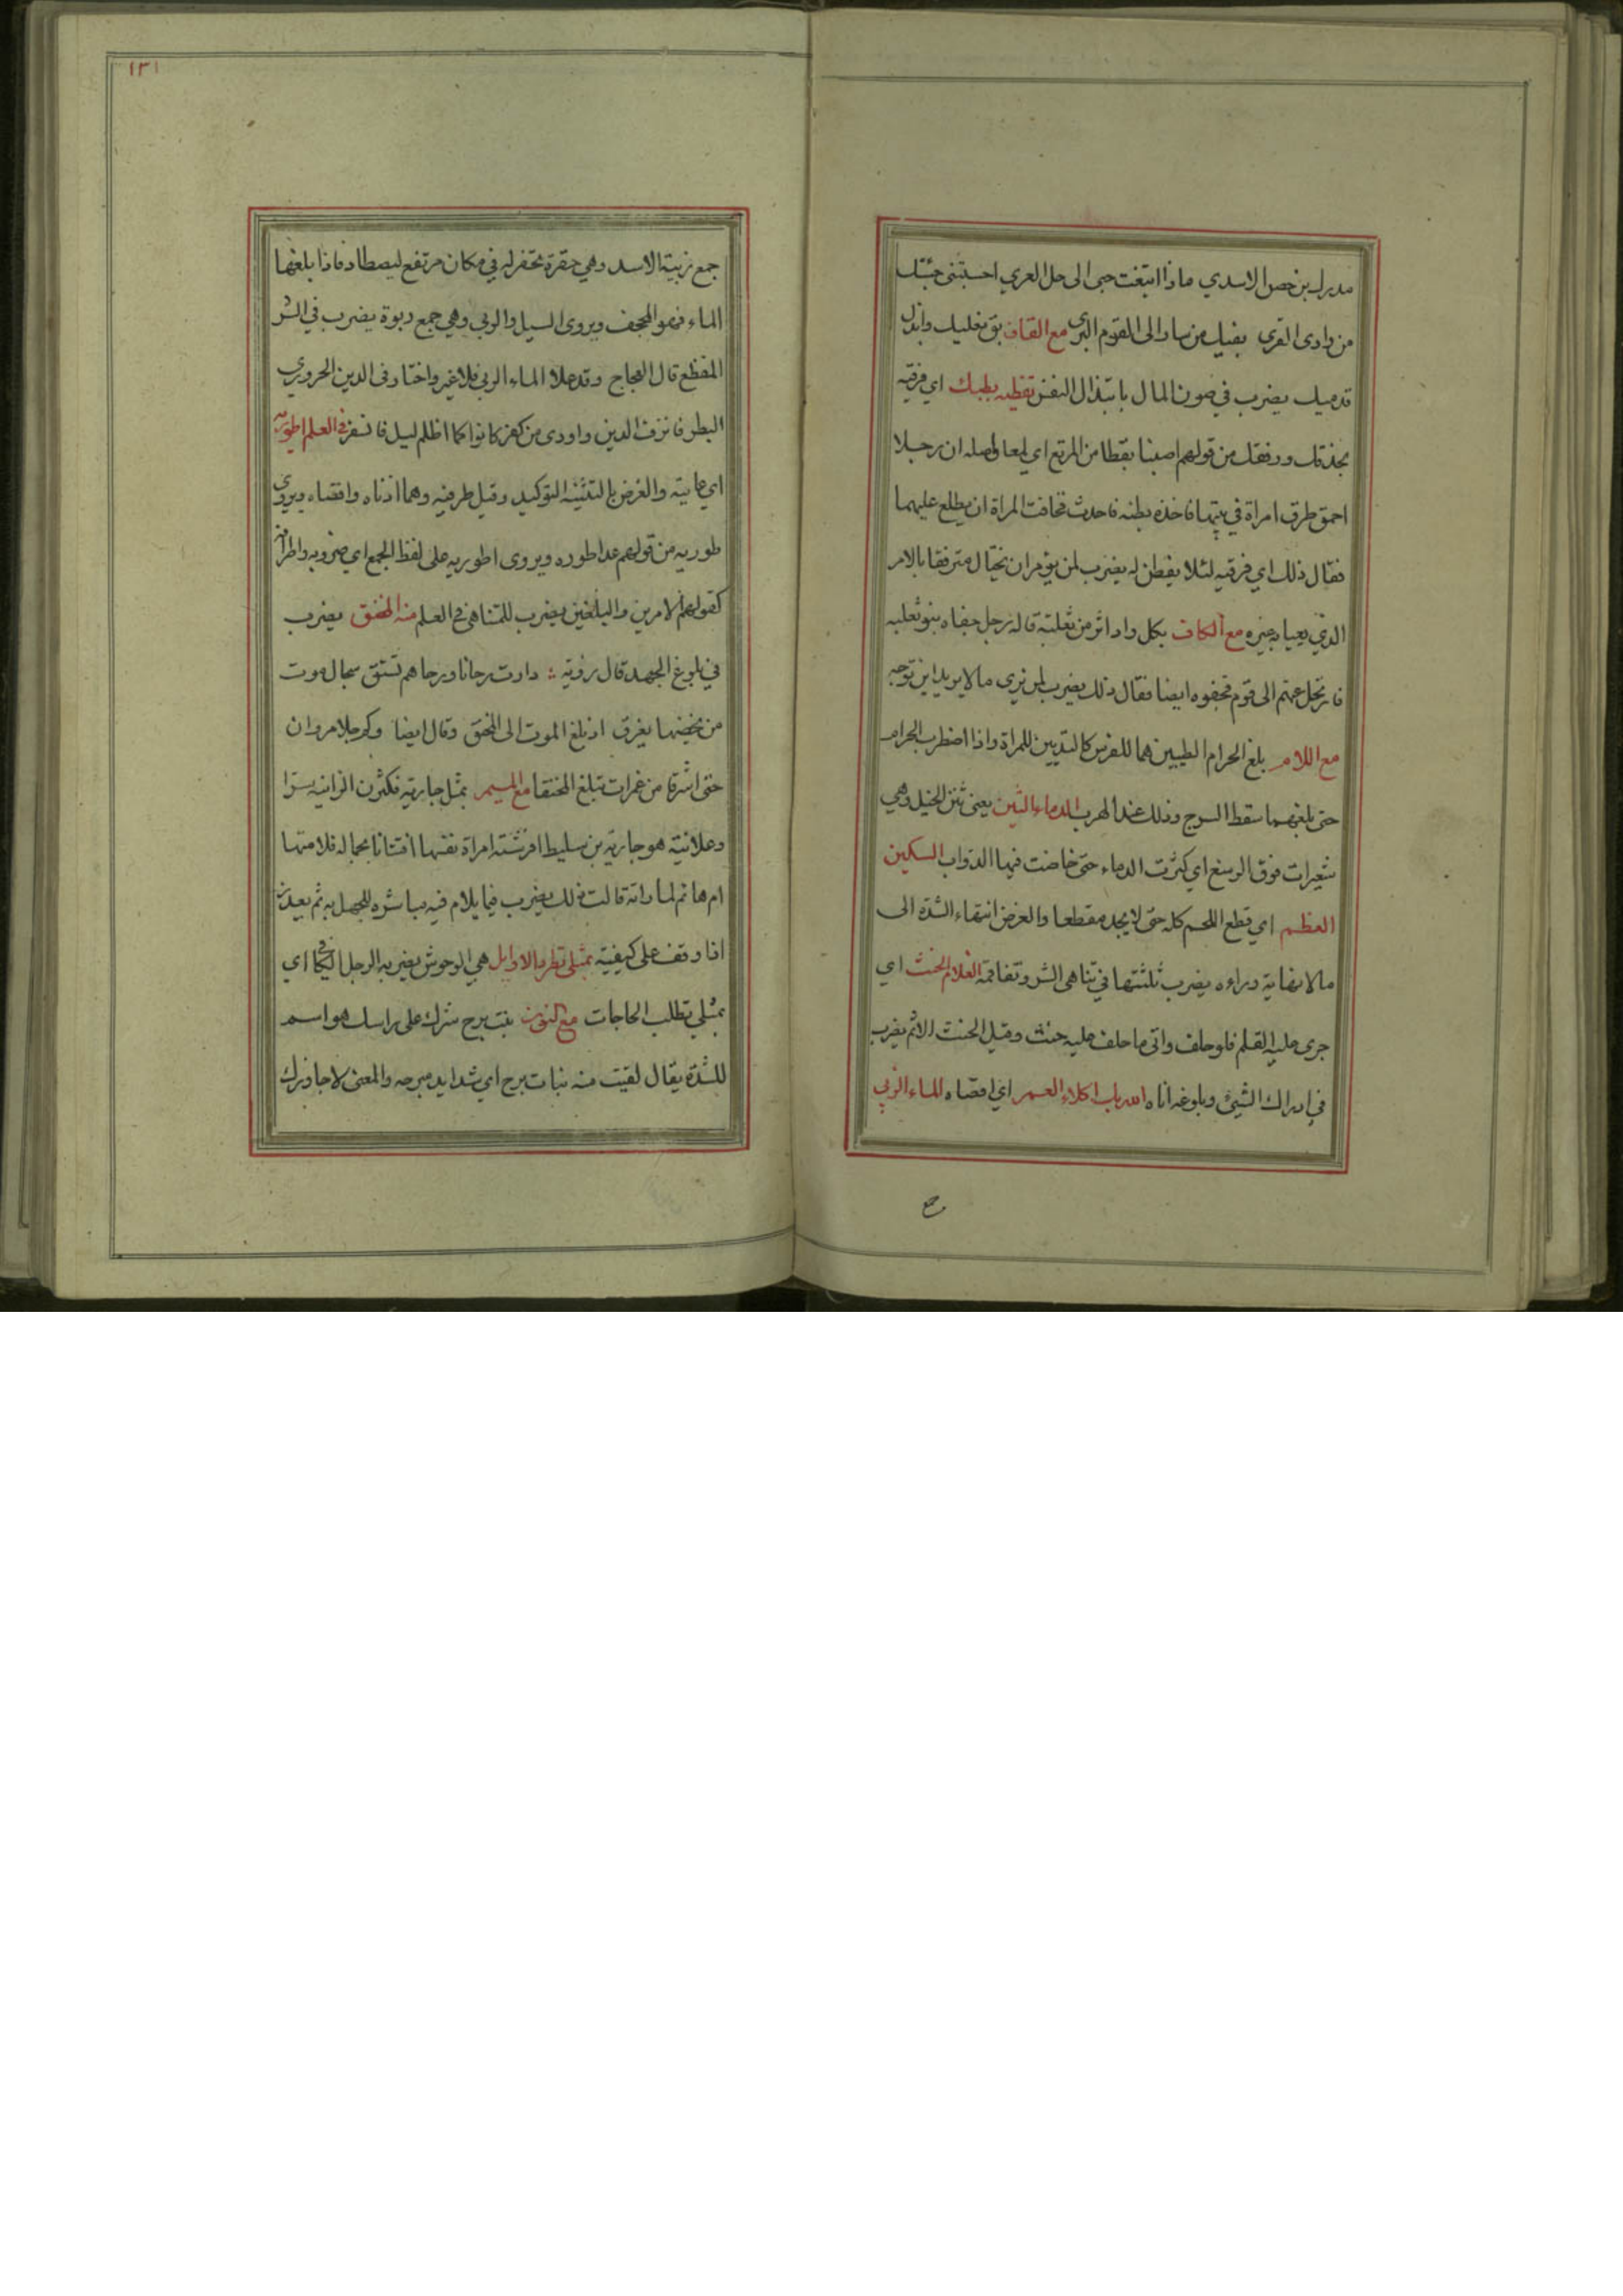 مدرك بن حصن الاسدي ماذا ابتغت حبى الى حل العري احسبتنى جئت
من وادى القرى بفيك من سار الى القوم البرى مع القاف بق نعليك وابذل
قدميك يضرب في صون المال بابتذال النفس بقطيه بطبك اي فرقيه
بحذقك ورفقك من قولهم اصبنا بقطا من المرتع اي لمعا واصله ان رجلا
احمق طرق امراة في بيتها فاخذه بطنه فاحدث فخافت المراة ان يطلع عليهما
فقال ذلك اي فرقيه لئلا يفطن له يضرب لمن يؤمر ان يحتال مترفقا بالامر
الذي يعيا به غيره مع الكاف بكل واد اثر من ثعلبة قاله رجل جفاه بنو ثعلبه
فارتحل عنهم الى قوم فجفوه ايضا فقال ذلك يضرب لمن يرى ما لا يريد اين توجه
مع اللام بلغ الحزام الطبيين هما للفرس كالثديين للمراة واذا اضطرب الحزام
حتى بلغهما سقط السرج وذلك عند الهرب الدماء الثنن يعنى ثنن الخيل وهي
شعيرات فوق الرسغ اي كثرت الدماء حتى خاضت فيها الدواب السكين
العظم اي قطع اللحم كله حتى لا يجد مقطعا والغرض انتهاء الشدة الى
ما لا نهاية وراءه يضرب ثلثتها في تناهى الشر وتفاقمه الغلام الحنث اي
جرى عليه القلم فلو حلف واتى ما حلف عليه حنث وقيل الحنث الاثم يضرب
في ادراك الشئ وبلوغه اناه الله بك اكلاء العمر اي اقصاه الماء الزبى
١٣١
جمع زبية الاسد وهي حفرة تحفر له في مكان مرتفع ليصطاد فاذا بلغها
الماء فهو المجحف ويروى السيل والربى وهي جمع ربوة يضرب في الشر
المفظع قال العجاج وقد علا الماء الزبى فلا غير واختار في الدين الحروري
البطر فانزف الدين واودى من كفر كانوا كما اظلم ليل فانسفر في العلم اطوريه
اي غايتيه والغرض بالتثنية التوكيد وقيل طرفيه وهما ادناه واقصاه ويروى
طوريه من قولهم عدا طوره ويروى اطوريه على لفظ الجمع اي ضروبه واطرافه
كقولهم الامرين والبلغين يضرب للمتناهى في العلم منه المخنق يضرب
في بلوغ الجهد قال رؤبة : دارت رحانا ورحاهم تستق سجال موت
من يخضها يغرق اذ بلغ الموت الى المخنق وقال ايضا وكم جلا مروان
حتى اشرقا من غمرات تبلغ المخنقا مع الميم بمثل جارية فلتزن الزانية سرا
وعلانية هو جارية بن سليط افرشته امراة نفسها افتتانا بجماله فلامتها
امها ثم لما راته قالت ذلك يضرب فيما يلام فيه مباشره للجهل به ثم يعذر
اذا وقف على كيفيته بمثلى تطرد الاوابد هي الوحوش يضربه الرجل الكافى اي
بمثلي تطلب الحاجات مع النون بنت برح شرك على راسك هو اسم
للشدة يقال لقيت منه بنات برح اي شدايد مبرحه والمعنى لا جاوزك